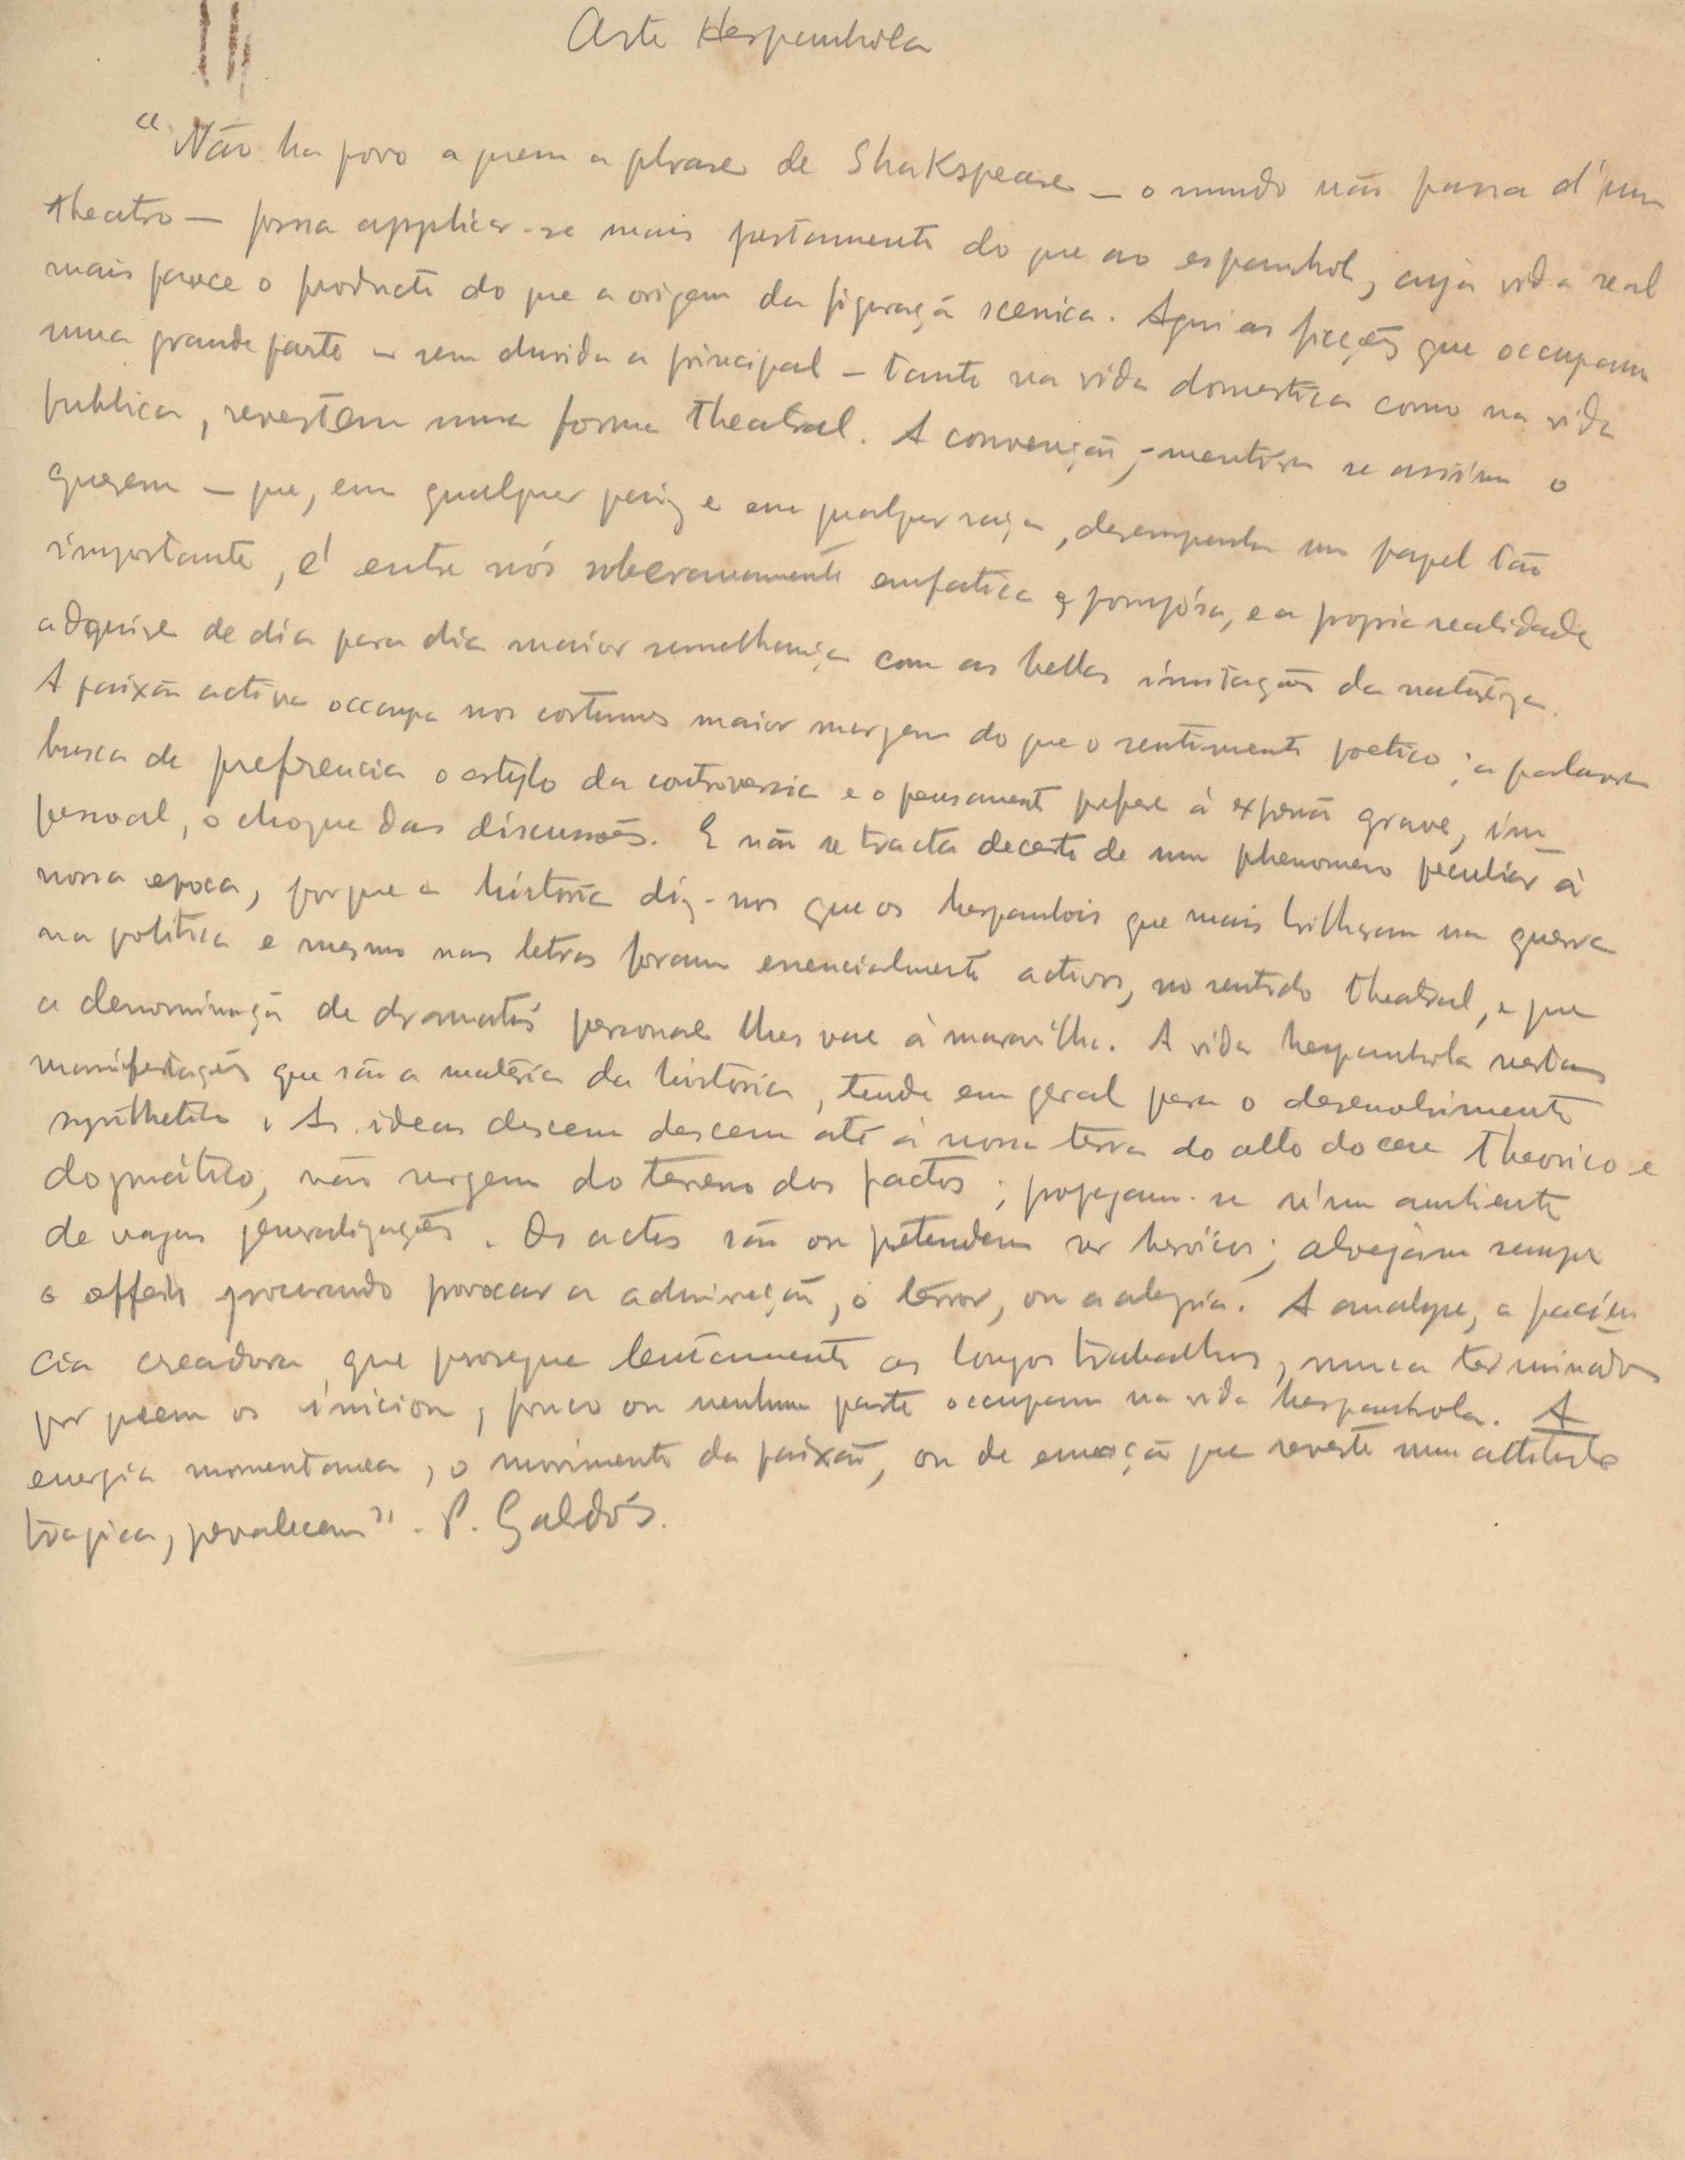 Arte Hespanhola
"Não ha povo a quem a phrase de Shakspeare – o mundo não passa d'um
theatro – possa applicar-se mais justamente do que ao espanhol, cuja vida real
mais parece o producto do que a origem da figuração scenica. Aqui as ficções que occupam
uma grande parte – sem duvida a principal – tanto na vida domestica como na vida
publica, revestem uma forma theatral. A convenção, – mentira se assim o
querem – que, em qualquer paiz e em qualquer raça, desempenha um papel tão
importante, é entre nós soberanamente emfatica e pomposa, e a propria realidade
adquire de dia para dia maior semelhança com as bellas imitações da natureza.
A paixão activa occupa nos costumes maior margem do que o sentimento poetico; a palavra
busca de preferencia o estylo da controversia e o pensamento prefere á exposição grave, im-
pessoal, o choque das discussões. E não se tracta decerto de um phenomeno peculiar á
nossa epoca, porque a historia diz-nos que os hespanhois que mais brilharam na guerra
na politica e mesmo nas letras foram essencialmente actores, no sentido theatral, e que
a denominação de dramatis personae lhes vae á maravilha. A vida hespanhola nestas
manifestações que são a materia da historia, tende em geral para o desenvolvimento
synthetico. As ideas descem descem até á nossa terra do alto do ceu theorico e
dogmático, não surgem do terreno dos factos; propagam-se n'um ambiente
de vagas generalizações. Os actos são ou pretendem ser heroicos; alvejam sempre
o effeito procurando provocar a admiração, o terror, ou a alegria. A analyse, a paciên-
cia creadora, que prosegue lentamente os longos trabalhos, nunca terminados
por quem os iniciou, pouco ou nenhuma parte occupam na vida hespanhola. A
energia momentanea, o movimento da paixão, ou de emoção que reveste uma attitude
tragica, prevalecem". P. Galdós.